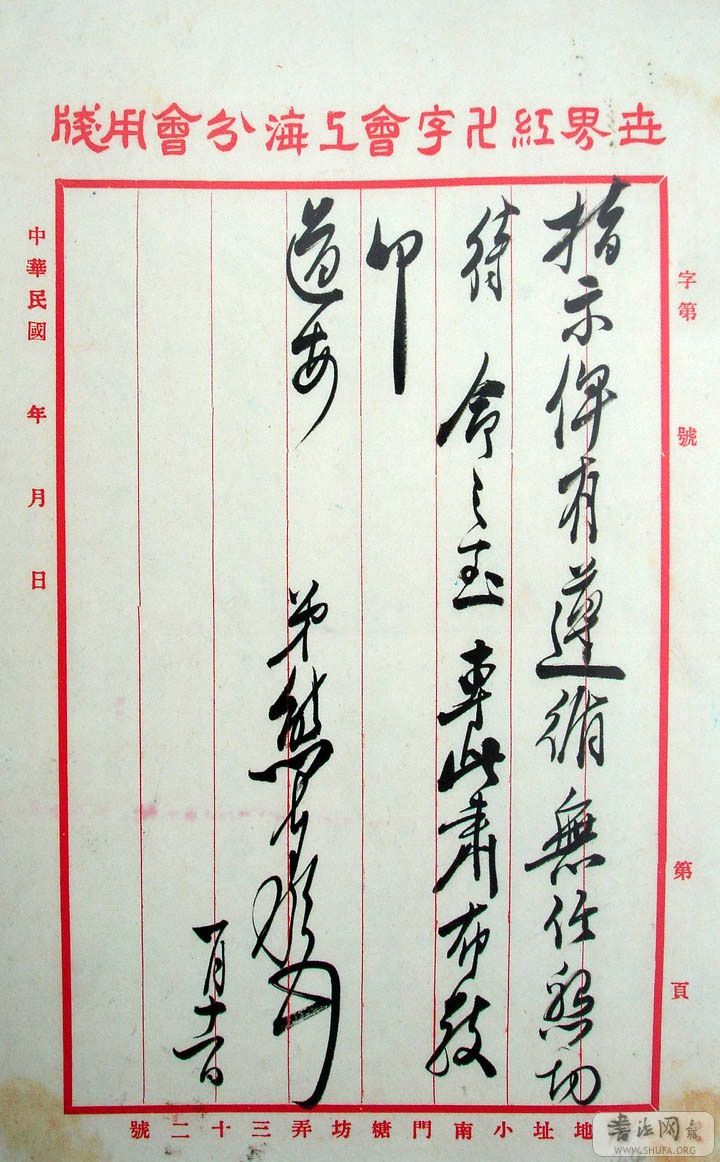 世界紅卍字會上海分會用牋
字第 號
第 頁
指示俾有遵循無任懇切
待 命之至專此肅布敬
叩
道安
弟熊希齡
一月十一日
中華民國 年 月 日
地址小南門糖坊弄三十二號
书法网
WWW.SHUFA.ORG